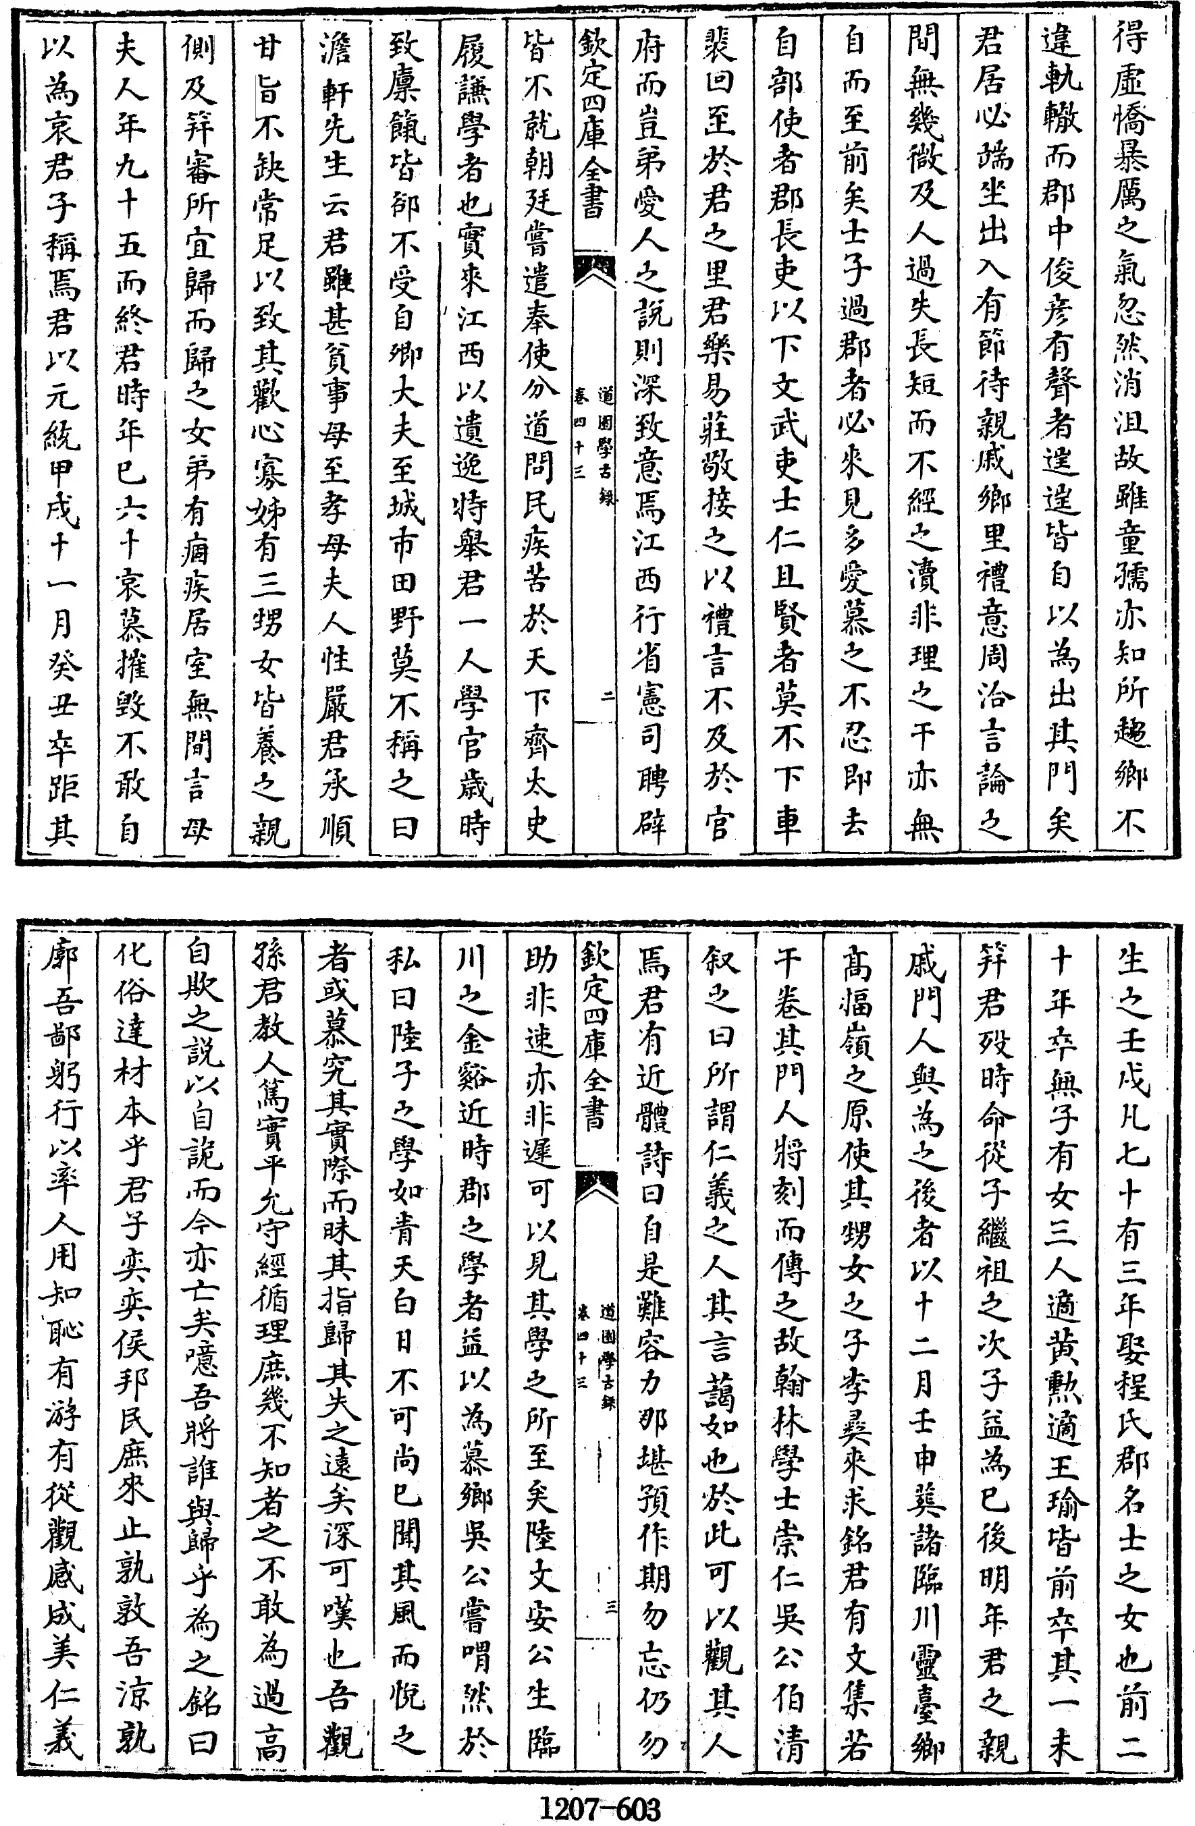 得虛憍暴厲之氣忽然消沮故雖童孺亦知所趨鄉不
違軌轍而郡中俊彦有聲者遑遑皆自以為出其門矣
君居必端坐出入有節待親戚鄉里禮意周洽言論之
間無幾微及人過失長短而不經之瀆非理之干亦無
自而至前矣士子過郡者必來見多愛慕之不忍即去
自部使者郡長吏以下文武吏士仁且賢者莫不下車
裴回至於君之里君樂易莊敬接之以禮言不及於官
府而豈弟愛人之說則深致意焉江西行省憲司聘辟
欽定四庫全書
道園學古録
卷四十三
二
皆不就朝廷嘗遣奉使分道問民疾苦於天下齊太史
履謙學者也實來江西以遺逸特舉君一人學官歲時
致廩餼皆卻不受自卿大夫至城市田野莫不稱之曰
澹軒先生云君雖甚貧事母至孝母夫人性嚴君承順
甘旨不缺常足以致其歡心寡姊有三甥女皆養之親
側及笄審所宜歸而歸之女弟有痼疾居室無間言母
夫人年九十五而終君時年已六十哀慕摧毁不敢自
以為哀君子稱焉君以元統甲戌十一月癸丑卒距其
生之壬戌凡七十有三年娶程氏郡名士之女也前二
十年卒無子有女三人適黄勲適王瑜皆前卒其一未
笄君殁時命從子繼祖之次子益為已後明年君之親
戚門人與為之後者以十二月壬申葬諸臨川靈臺鄉
髙福嶺之原使其甥女之子李㬰來求銘君有文集若
干卷其門人將刻而傳之故翰林學士崇仁吳公伯清
叙之曰所謂仁義之人其言藹如也於此可以觀其人
焉君有近體詩曰自是難容力那堪預作期勿忘仍勿
欽定四庫全書
道園學古録
卷四十三
三
助非速亦非遲可以見其學之所至矣陸文安公生臨
川之金谿近時郡之學者益以為慕鄉吳公嘗喟然於
私曰陸子之學如青天白日不可尚已聞其風而悅之
者或慕究其實際而昧其指歸其失之遠矣深可嘆也吾觀
孫君教人篤實平允守經循理庶幾不知者之不敢為過高
自欺之説以自詭而今亦亡矣噫吾將誰與歸乎為之銘曰
化俗達材本乎君子奕奕侯邦民庶來止孰敦吾涼孰
廓吾鄙躬行以率人用知恥有游有從觀感成美仁義
1207-603